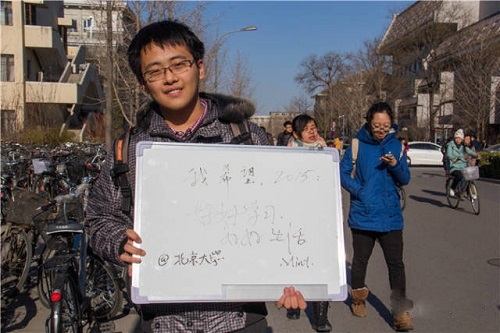 我希望，2015，
好好学习，
好好生活
@北京大学
Mint.